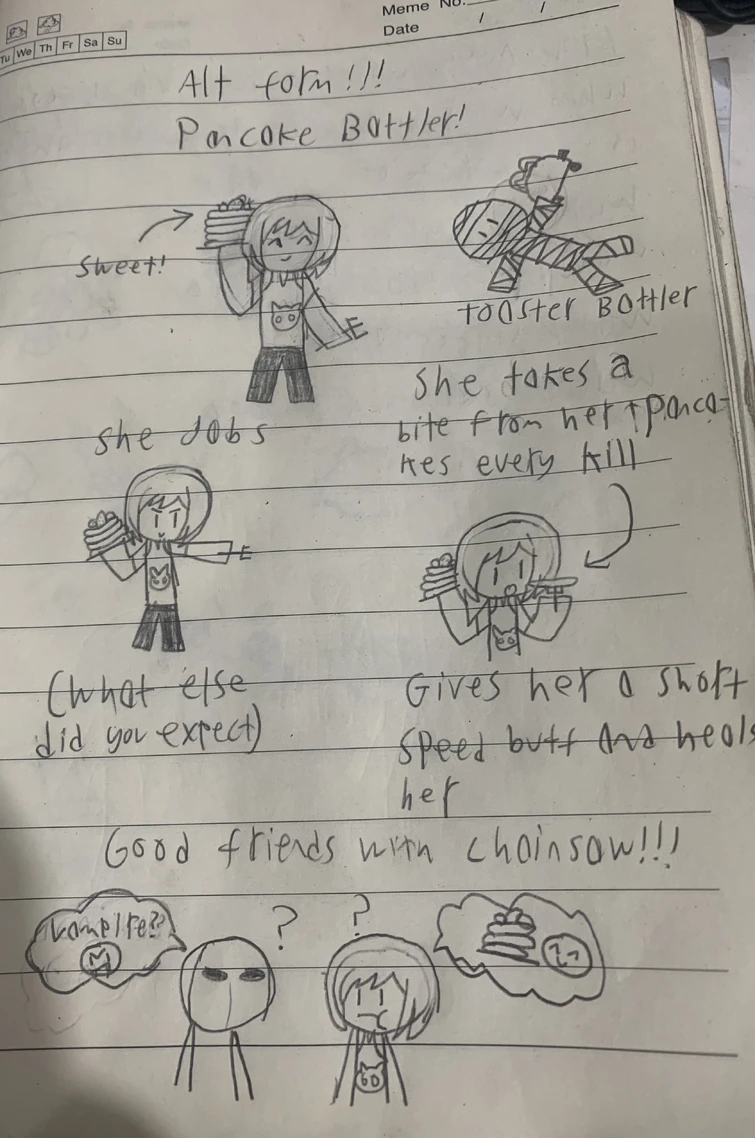 Meme No.
Date / /
Tu We Th Fr Sa Su
Alt form!!!
Pancake Battler!
Sweet!
TOASTER BAttler
She takes a
bite from her ↑ panca-
kes every kill
she Jabs
(What else
did you expect)
Gives her a short
speed buff And heals
her
Good friends with Chainsaw!!!
Vampire??
? ?